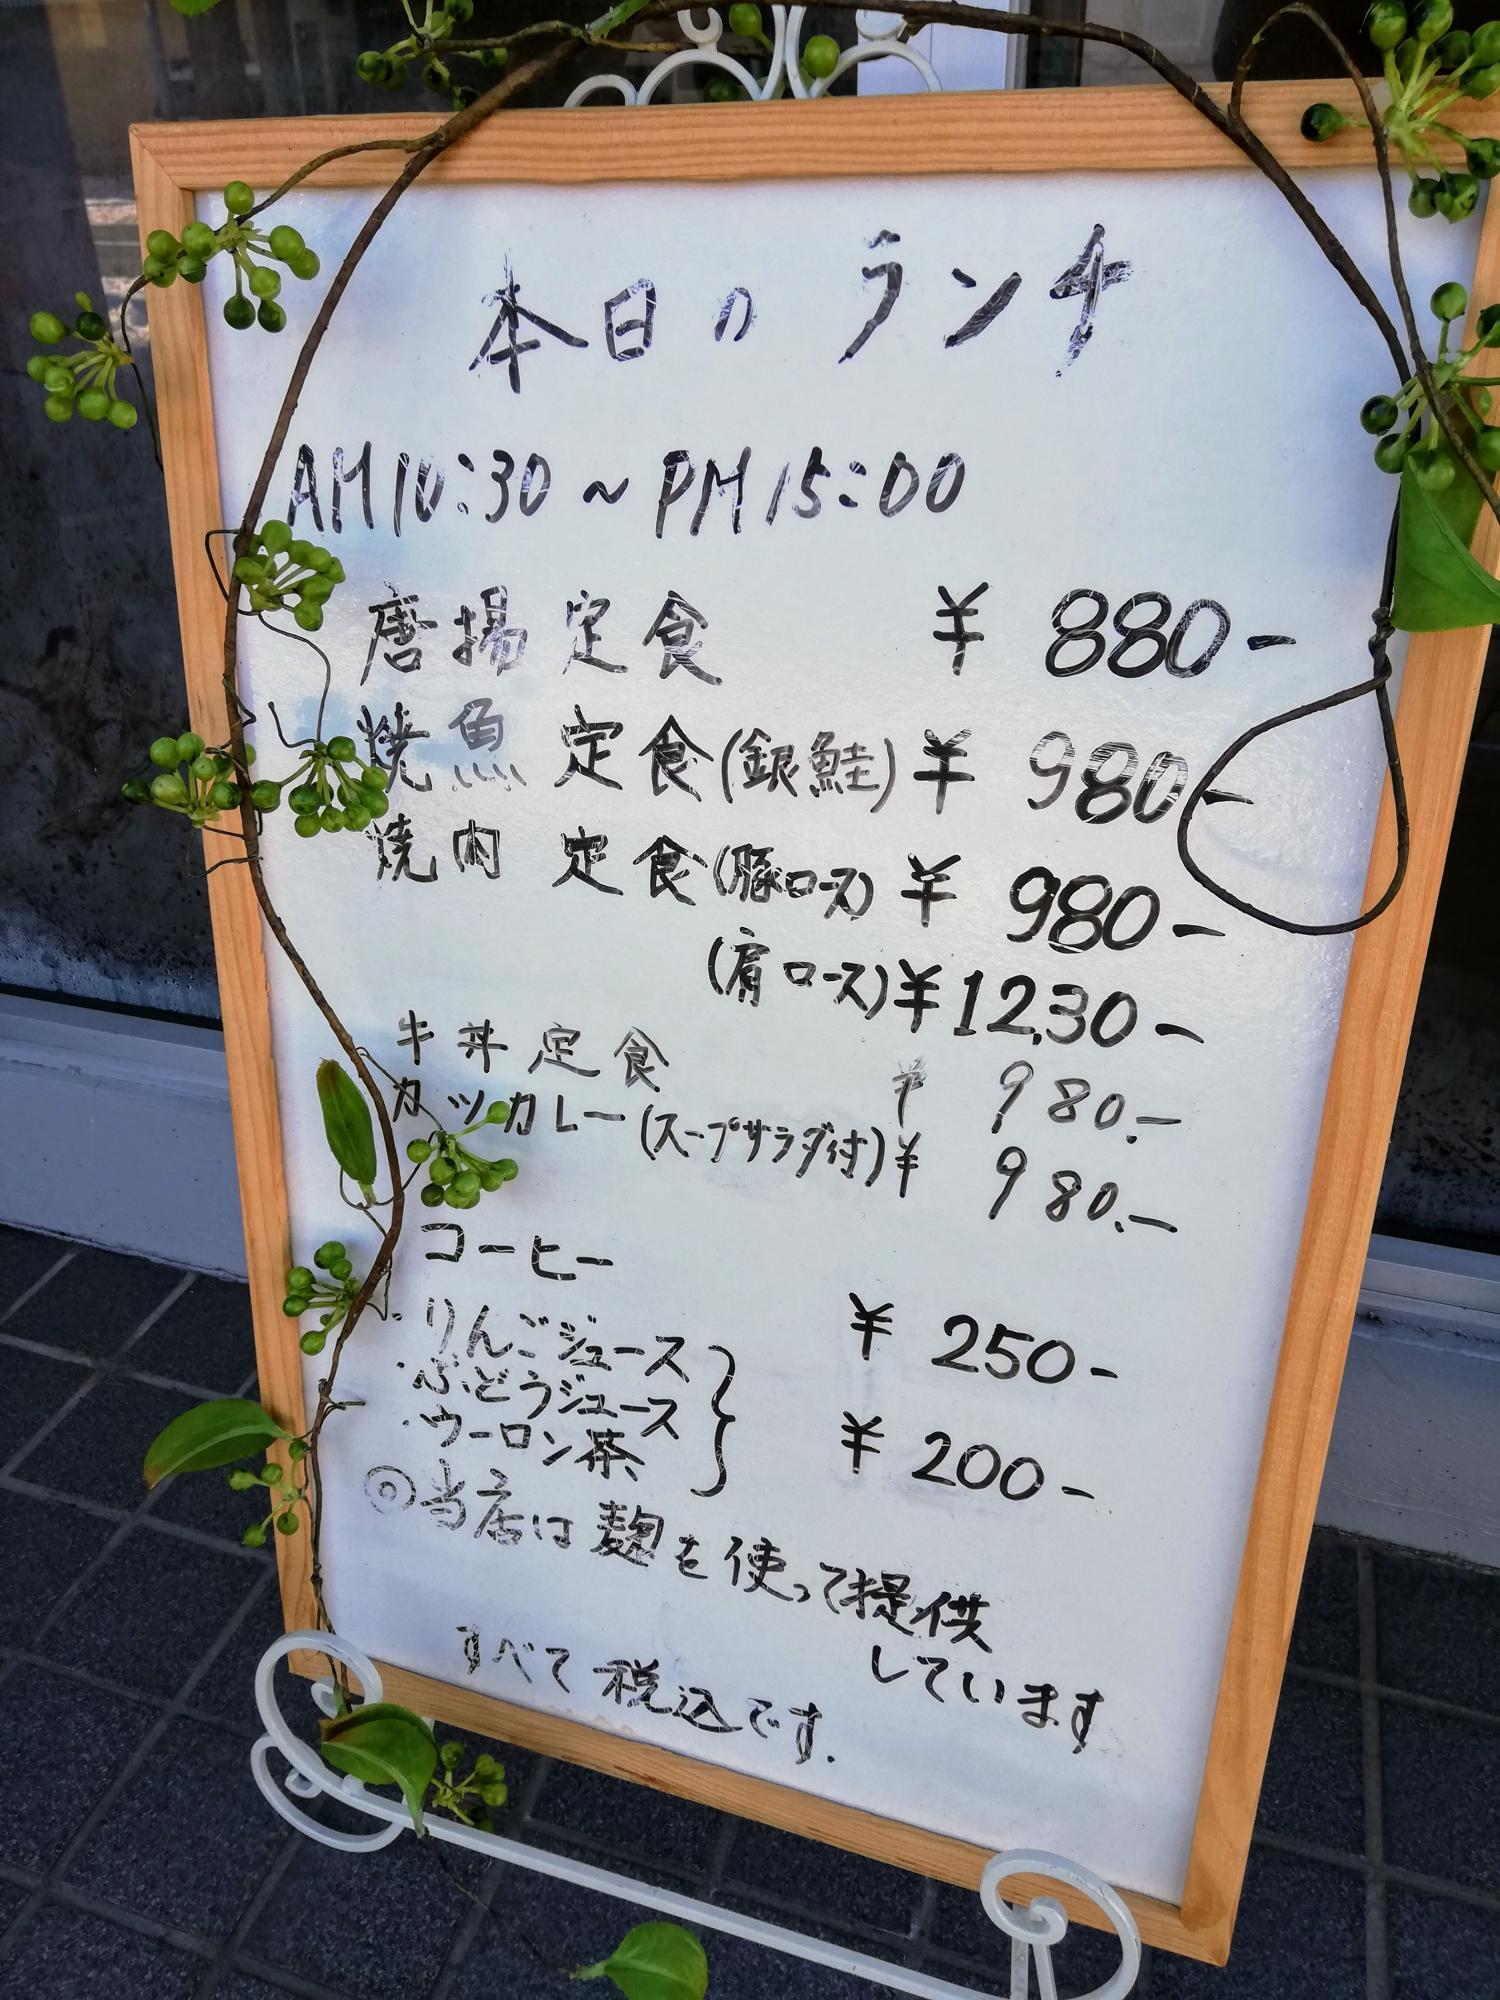 本日のランチ
AM10:30～PM15:00
唐揚定食 ¥880-
焼魚定食(銀鮭) ¥980-
焼肉定食(豚ロース) ¥980-
(肩ロース) ¥1230-
牛丼定食 ¥980.-
カツカレー(スープサラダ付) ¥980.-
コーヒー ¥250-
・りんごジュース
・ぶどうジュース
・ウーロン茶 ¥200-
◎当店は麹を使って提供
しています
すべて税込です.